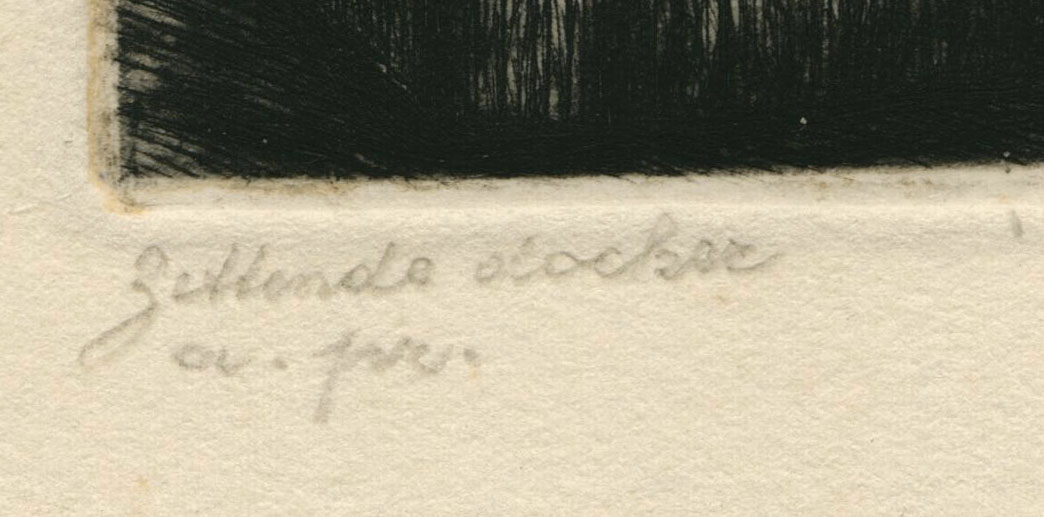 Zittende docker
a. pr.